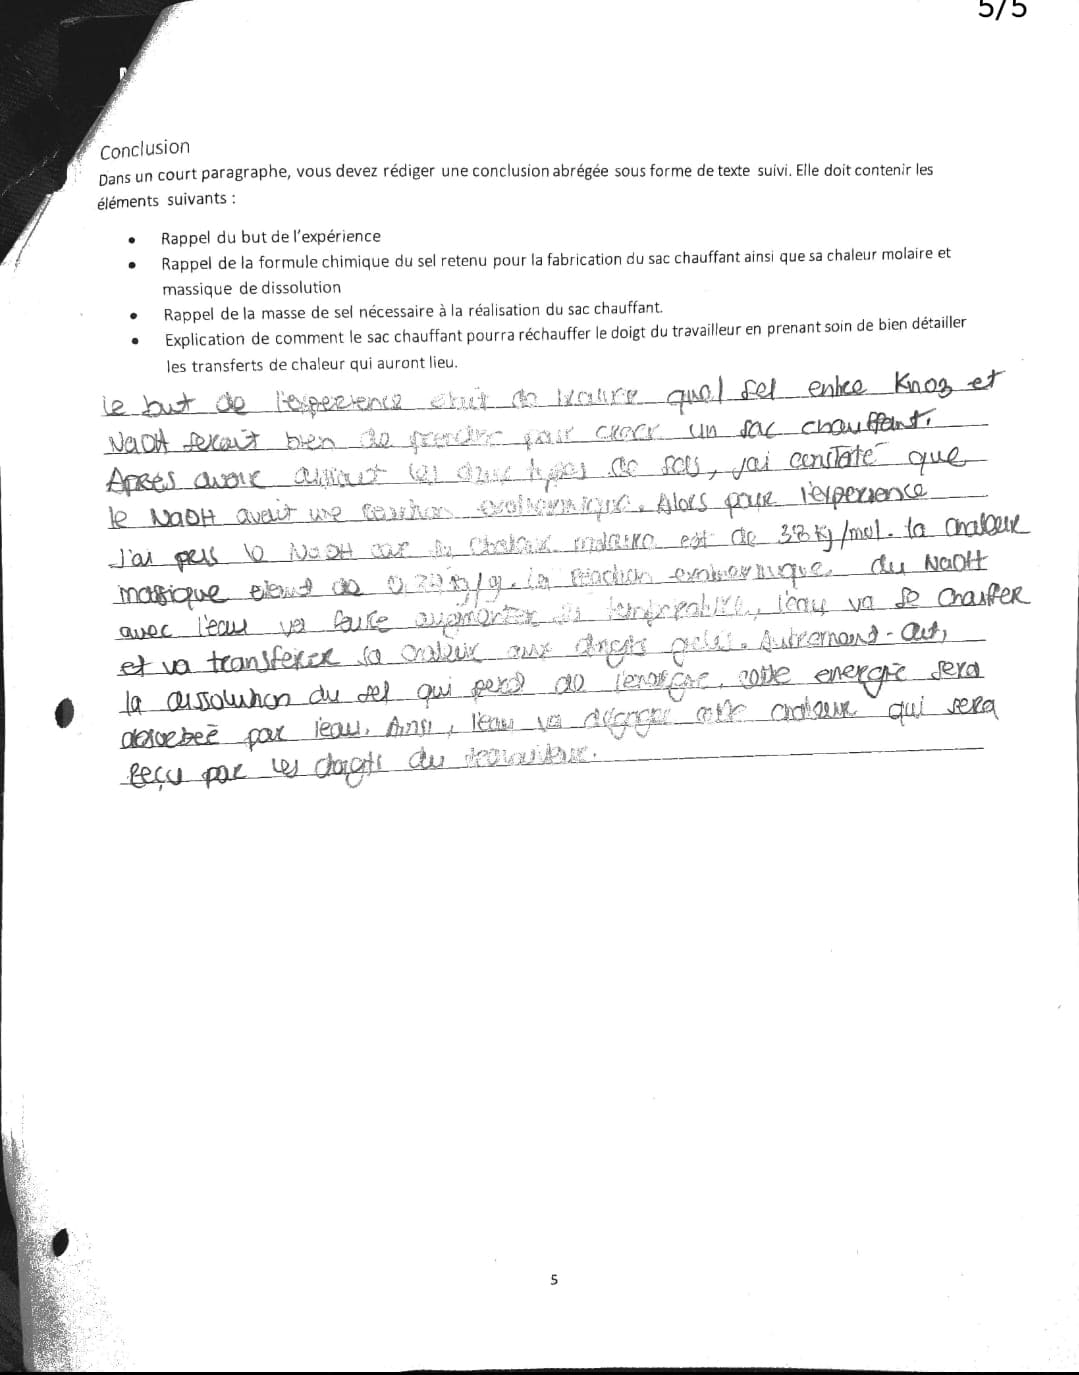 5/5
Conclusion
Dans un court paragraphe, vous devez rédiger une conclusion abrégée sous forme de texte suivi. Elle doit contenir les
éléments suivants :
• Rappel du but de l'expérience
• Rappel de la formule chimique du sel retenu pour la fabrication du sac chauffant ainsi que sa chaleur molaire et
massique de dissolution
• Rappel de la masse de sel nécessaire à la réalisation du sac chauffant.
• Explication de comment le sac chauffant pourra réchauffer le doigt du travailleur en prenant soin de bien détailler
les transferts de chaleur qui auront lieu.
le but de l'experience était de quel sel entre Kno3 et
NaOH serait bien de prendre pour créer un sac chauffant.
Apres avoir les deux types de sels, j'ai constaté que
le NaOH avait une exothermique. Alors pour l'experience
J'ai pris le NaOH car la chaleur molaire est de KJ/mol. la chaleur
massique étant de la réaction exothermique du NaOH
avec l'eau va faire augmenter la température, l'eau va se chauffer
et va transférer sa chaleur aux doigts gelés. Autrement-dit,
la dissolution du sel qui perd de l'énergie, cette energie sera
absorbeé par l'eau. Ainsi, l'eau va dégager cette chaleur qui sera
Reçu par les doigts du travailleur.
5